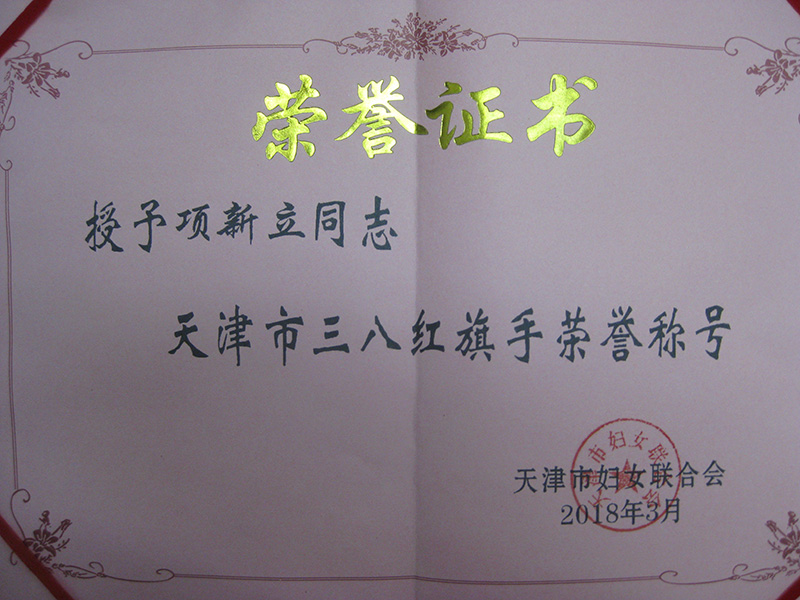 荣誉证书
授予项新立同志
天津市三八红旗手荣誉称号
天津市妇女联合会
2018年3月
天津市妇女联合会